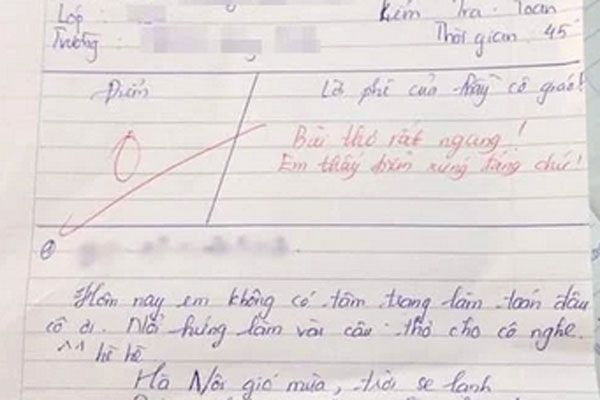 Lớp :
Kiểm Tra : Toán
Trường :
Thời gian : 45'
Điểm
Lời phê của thầy cô giáo!
0
Bài thơ rất ngang !
Em thấy điểm xứng đáng chứ!
Hôm nay em không có tâm trạng làm toán đâu
cô ơi. Nổi hứng làm vài câu thơ cho cô nghe.
^^ hề hề
Hà Nội gió mùa, trời se lạnh